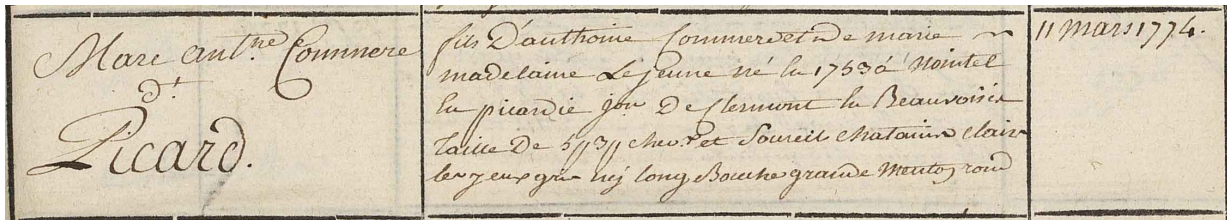 Marc ant.ne Commere
d.t
Picard.
fils D'anthoine Commere et de marie
madelaine Lejeune né en 1753 à Nointel
en picardie jon. De Clermont en Beauvoisis
taille De 5 p 3 p chev.x et Sourcil chatains clair
les yeux gris nez long Bouche grande menton rond
11 mars 1774.